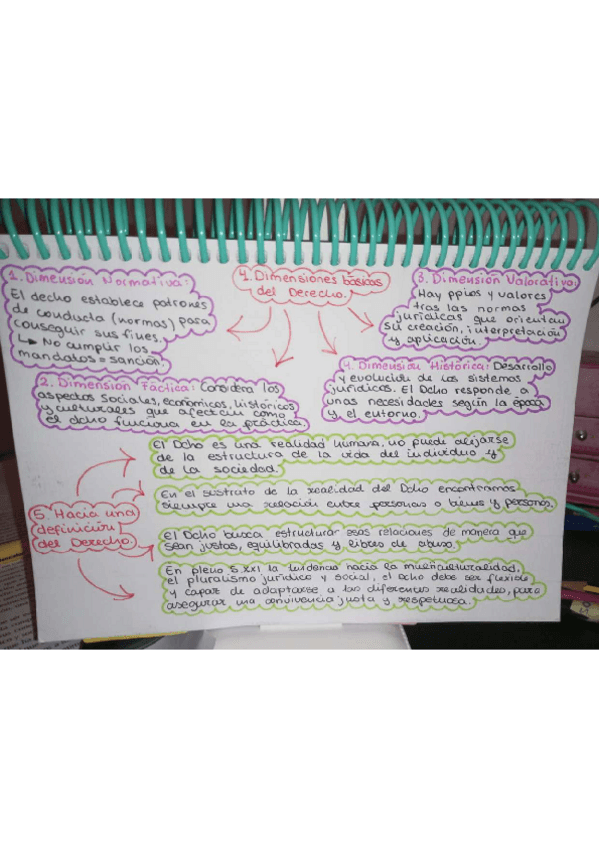 4. Dimensiones básicas
del Derecho.
1. Dimensión Normativa:
El decho establece patrones
de conducta (normas) para
conseguir sus fines.
↳ No cumplir los
mandatos = sanción.
2. Dimensión Fáctica: Considera los
aspectos sociales, económicos, históricos
y culturales que afectan cómo
el dcho funciona en la práctica.
3. Dimensión Valorativa:
Hay ppios y valores
tras las normas
jurídicas que orientan
su creación, interpretación
y aplicación.
4. Dimensión Histórica: Desarrollo
y evolución de los sistemas
jurídicos. El Dcho responde a
unas necesidades según la época
y el entorno.
5. Hacia una
definición
del Derecho.
El Dcho es una realidad humana, no puede alejarse
de la estructura de la vida del individuo y
de la sociedad.
En el sustrato de la realidad del Dcho encontramos
siempre una relación entre personas o bienes y personas.
el Dcho busca estructurar esas relaciones de manera que
sean justas, equilibradas y libres de abuso.
En pleno S.XXI la tendencia hacia la multiculturalidad,
el pluralismo jurídico y social, el Dcho debe ser flexible
y capaz de adaptarse a las diferentes realidades, para
asegurar una convivencia justa y respetuosa.